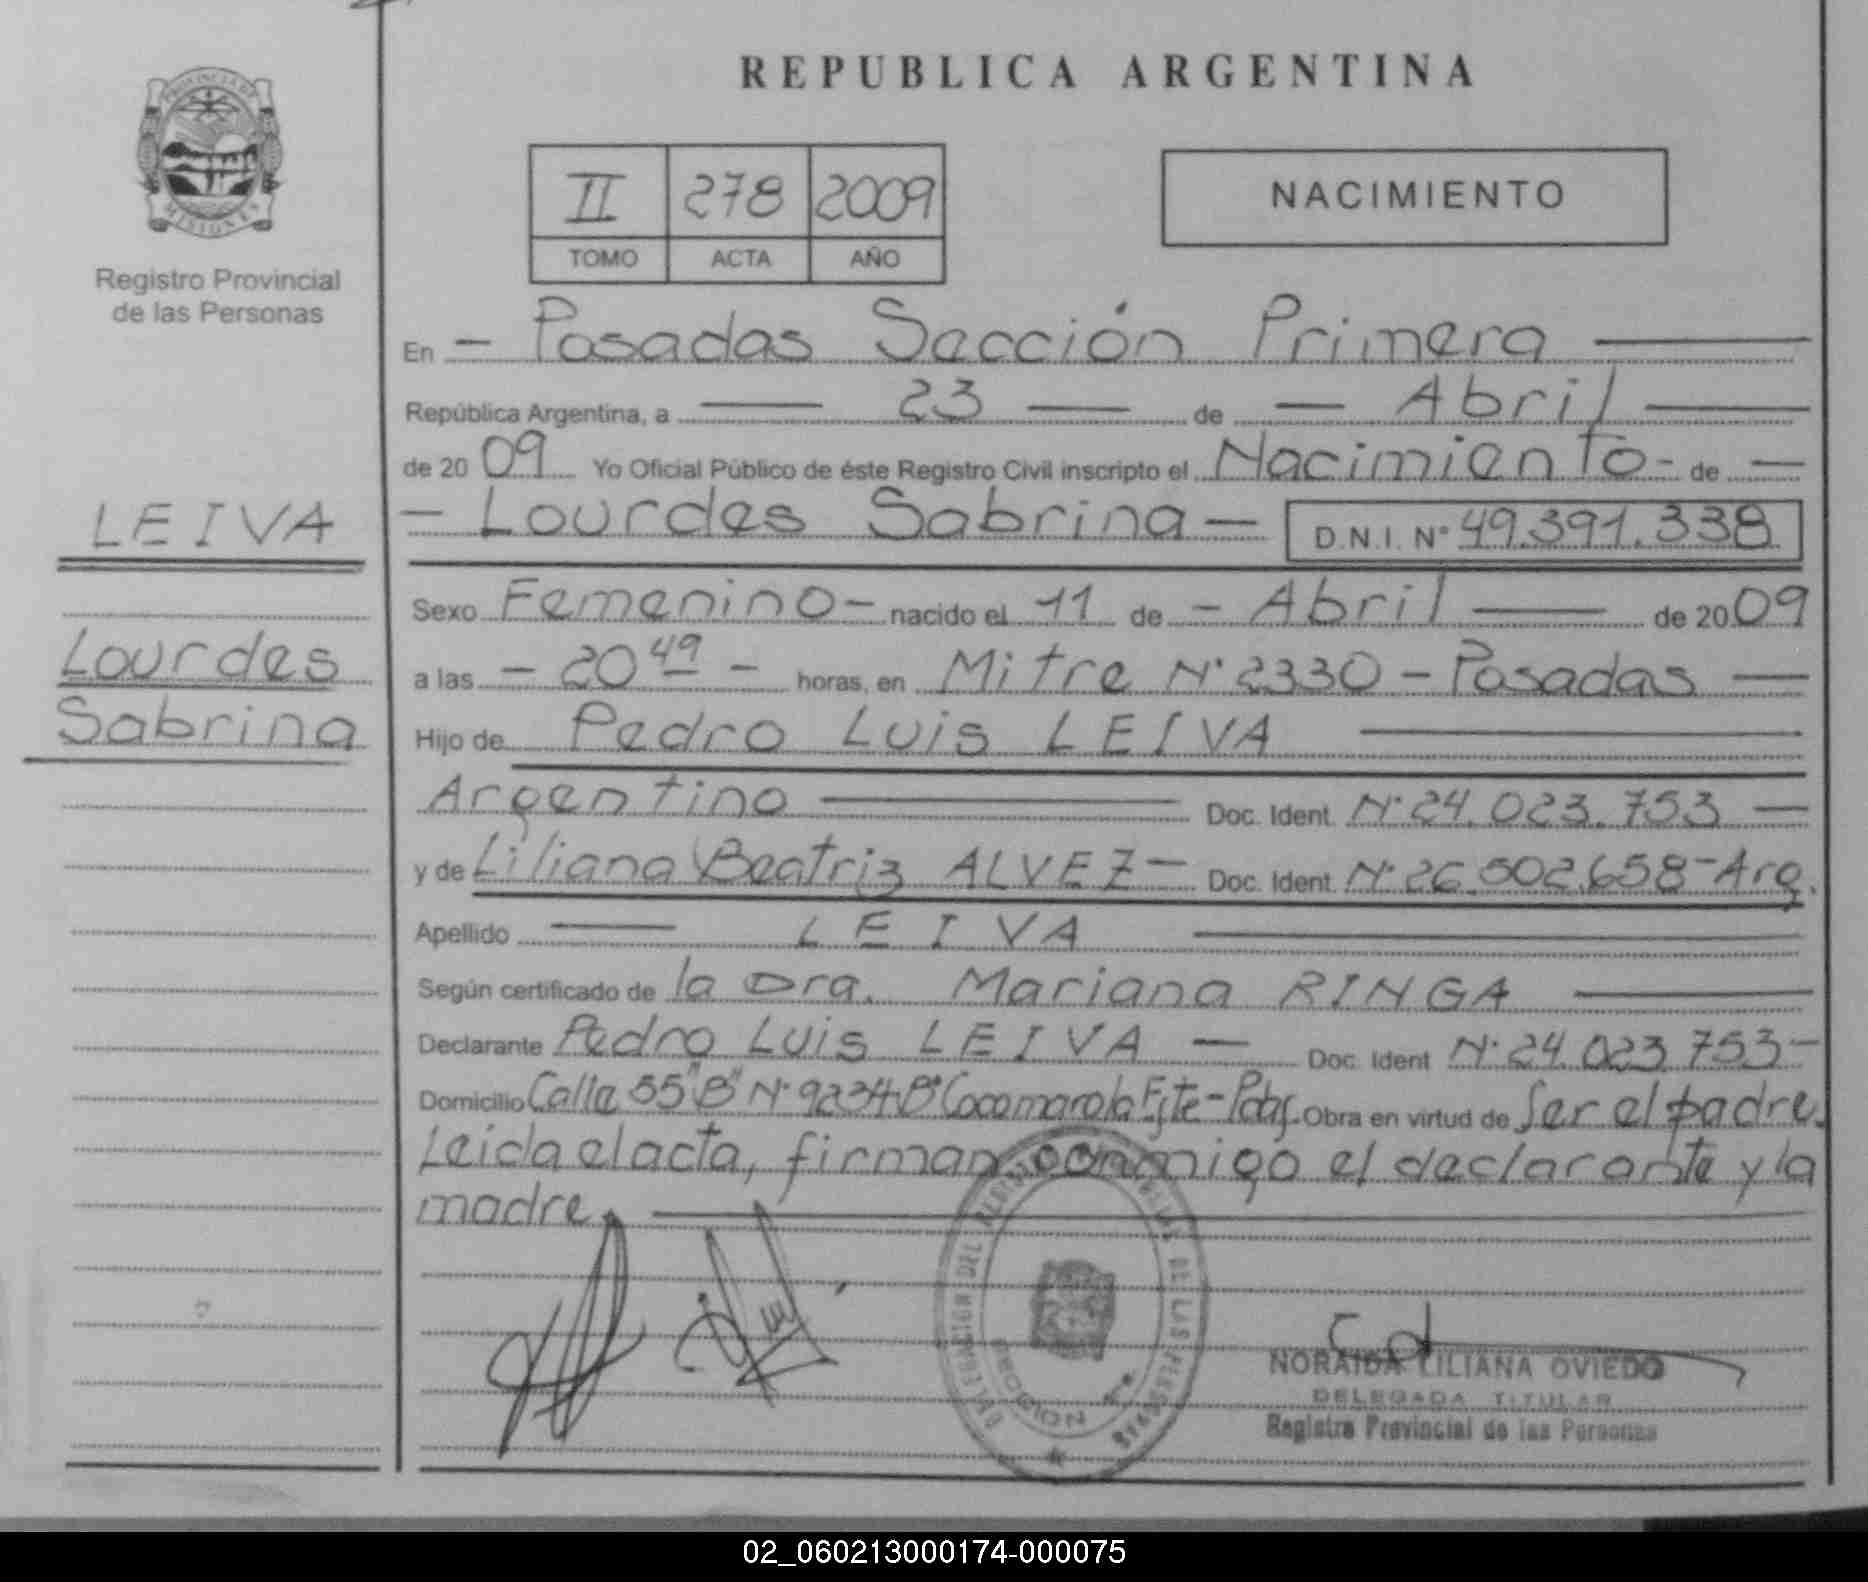 REPUBLICA ARGENTINA
PROVINCIA DE
MISIONES
Registro Provincial
de las Personas
II 278 2009
TOMO ACTA AÑO
NACIMIENTO
En - Posadas Sección Primera
República Argentina, a 23 de - Abril
de 2009 Yo Oficial Público de éste Registro Civil inscripto el Nacimiento - de -
LEIVA
- Lourdes Sabrina - D.N.I. N° 49.391.338
Sexo Femenino - nacido el 11 de - Abril de 2009
Lourdes
a las - 20 49 - horas, en Mitre N° 2330 - Posadas
Sabrina
Hijo de Pedro Luis LEIVA
Argentino Doc. Ident. N° 24.023.753
y de Liliana Beatriz ALVEZ - Doc. Ident. N° 26.502.658 - Arg.
Apellido LEIVA
Según certificado de la Dra. Mariana RINGA
Declarante Pedro Luis LEIVA - Doc. Ident N° 24.023.753 -
Domicilio Calle 55 "B" N° 9234 B° Cocomarola Obra en virtud de Ser el padre.
Leida el acta, firman conmigo el declarante y la
madre.
DELEGACION DEL DE LAS PERSONAS
SECCION 1ra.
NORAIDA LILIANA OVIEDO
DELEGADA TITULAR
Registro Provincial de las Personas
02_060213000174-000075